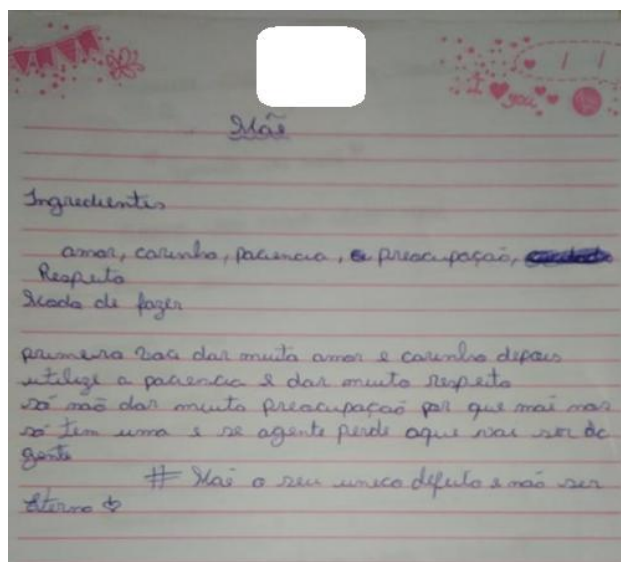 I ♥ you
/ /
Mãe
Ingredientes
amor, carinho, paciencia, e preocupação,
Respeito
Modo de fazer
primeiro voci dar muito amor e carinho depois
utilize a paciencia e dar muito respeito
só não dar muito preocupação por que mãe nos
só tem uma e se agente perde oque vai ser da
gente
# Mãe o seu unico defeito e não ser
Eterno